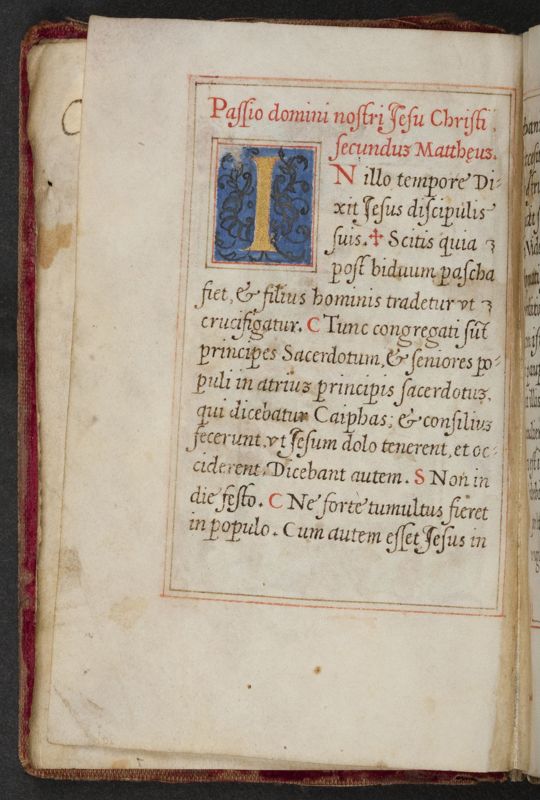 Passio domini nostri Jesu Christi,
secunduʒ Mattheuʒ.
I
N illo tempore Di-
xit Jesus discipulis
suis. ✝ Scitis quia ʒ
post biduum pascha
fiet, & filius hominis tradetur vt ʒ
crucifigatur. C Tunc congregati sũt
principes Sacerdotum, & seniores po-
puli in atriuʒ principis sacerdotuʒ,
qui dicebatur Caiphas; & consiliuʒ
fecerunt, vt Jesum dolo tenerent, et oc-
ciderent. Dicebant autem. S Non in
die festo. C Ne forte tumultus fieret
in populo. Cum autem esset Jesus in